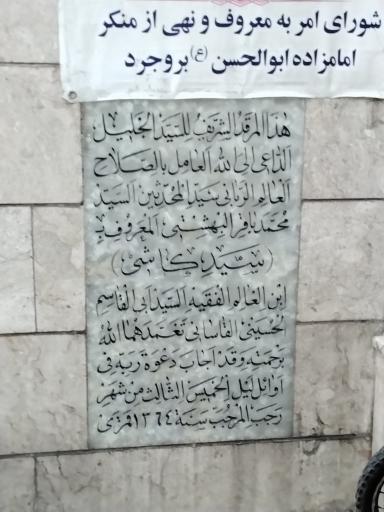 شورای امر به معروف و نهی از منکر
امامزاده ابوالحسن (ع) بروجرد
هذا المرقد الشریف للسید الجلیل
الداعی الی الله العامل بالصلاح
العالم الربانی سید المحدثین السید
محمد باقر البهشتی المعروف بـ
(سید کاشی)
ابن العالم الفقیه السید ابی القاسم
الحسینی القاسانی تغمدهما الله
برحمته وقد اجاب دعوة ربه فی
اوائل لیل الخمیس الثالث من شهر
رجب المرجب سنة ١٣٦٤ قمری